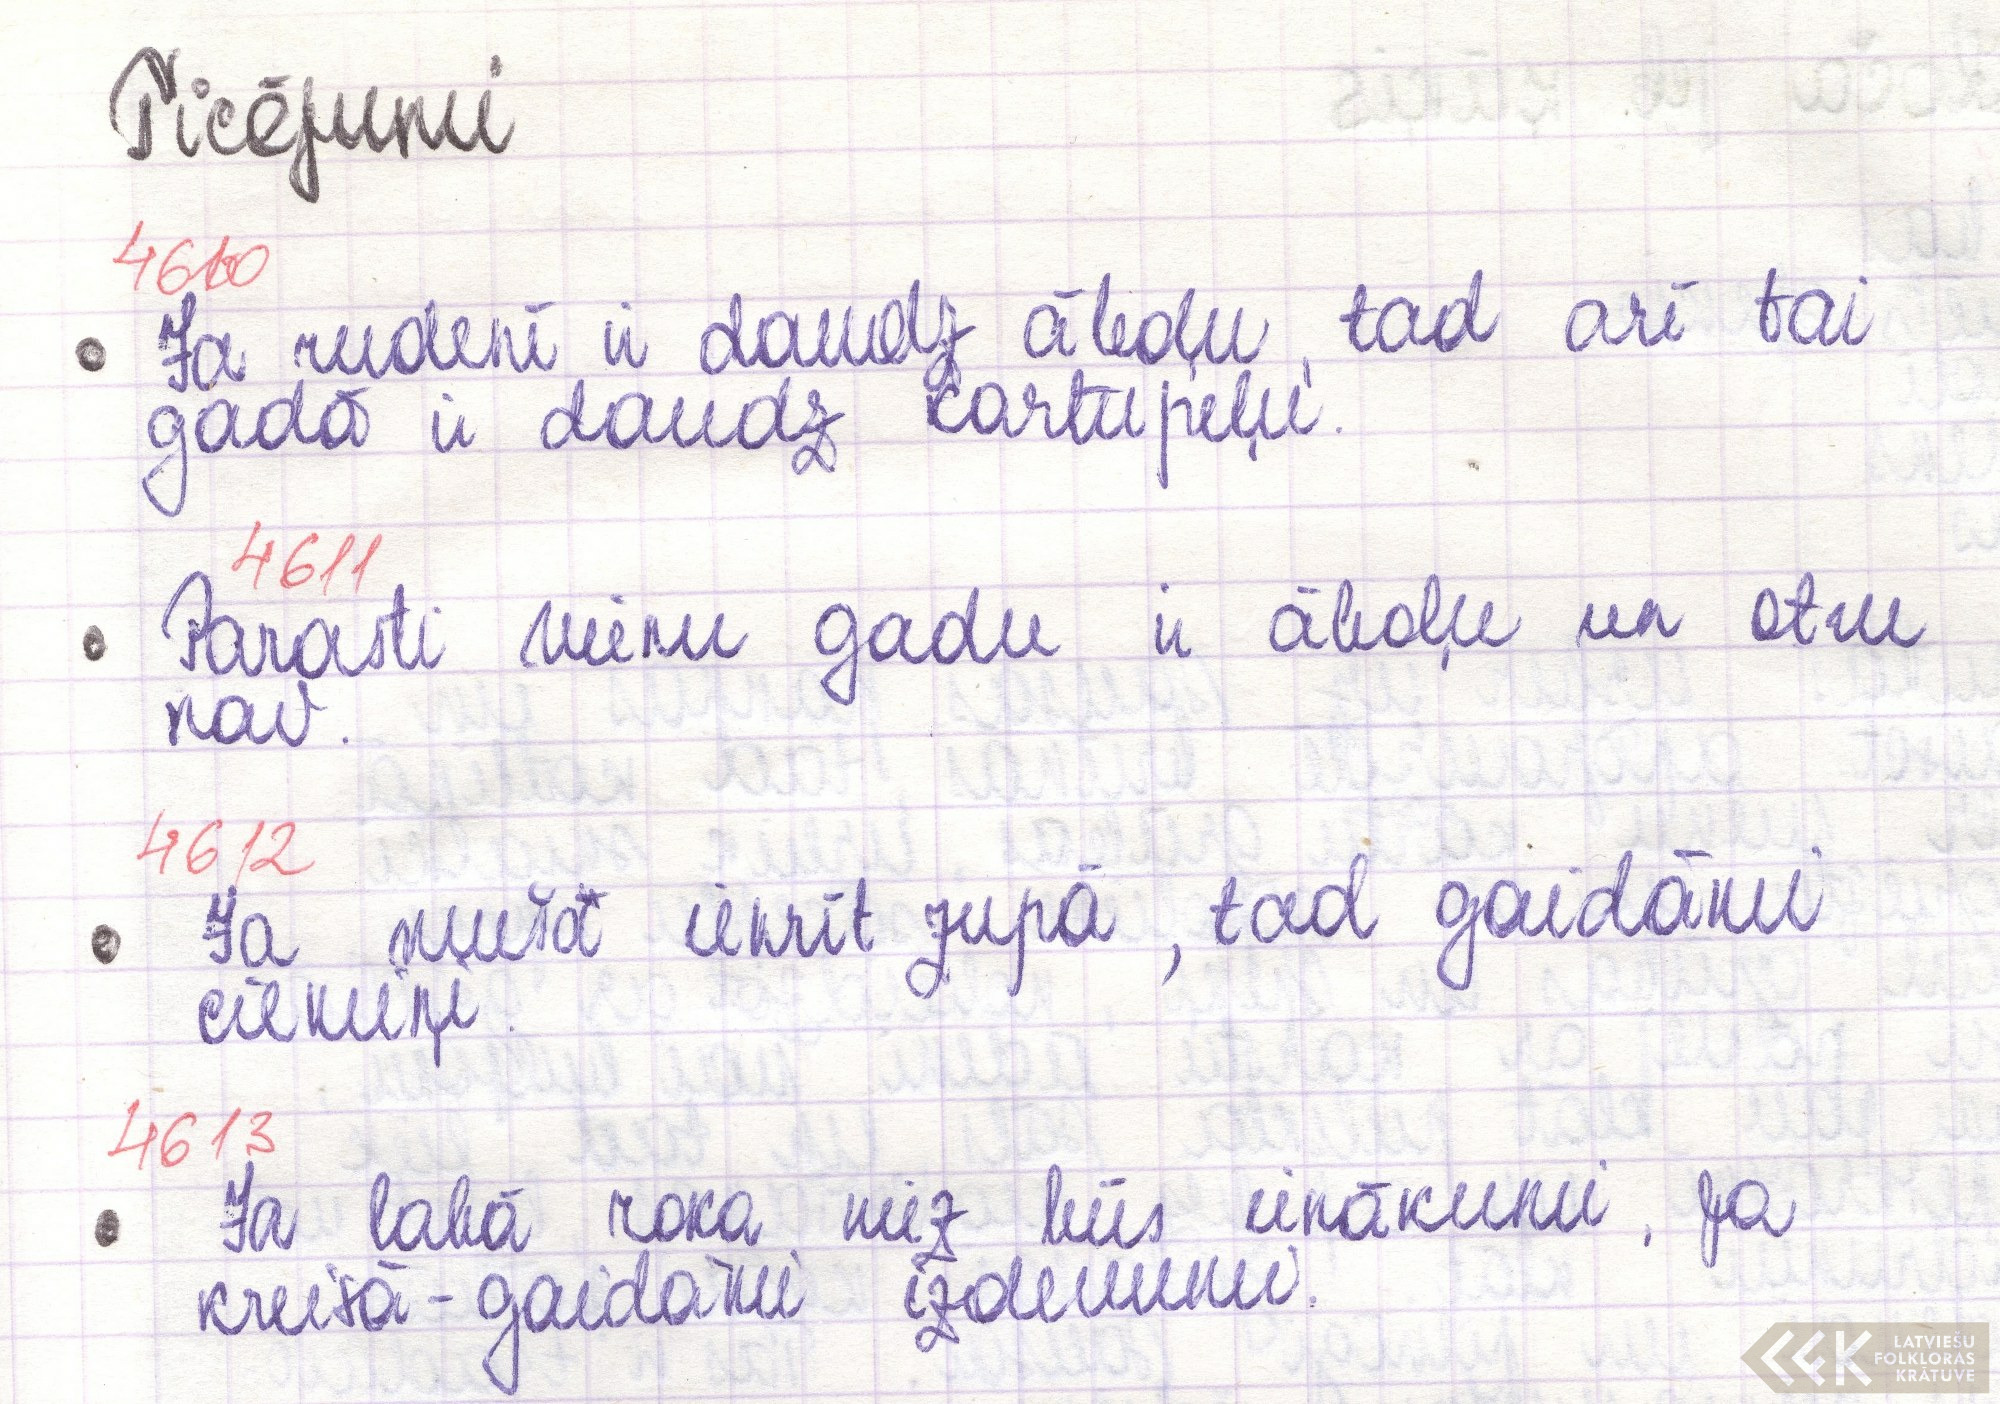 Ticējumi
4610
• Ja rudenī ir daudz āboļu, tad arī tai
gadā ir daudz kartupeļu.
4611
• Parasti vienu gadu ir ābolu un otru
nav.
4612
• Ja muša iekrīt zupā, tad gaidāmi
ciemiņi.
4613
• Ja labā roka niez būs ienākumi, ja
kreisā - gaidāmi izdevumi.
LATVIEŠU
FOLKLORAS
KRĀTUVE